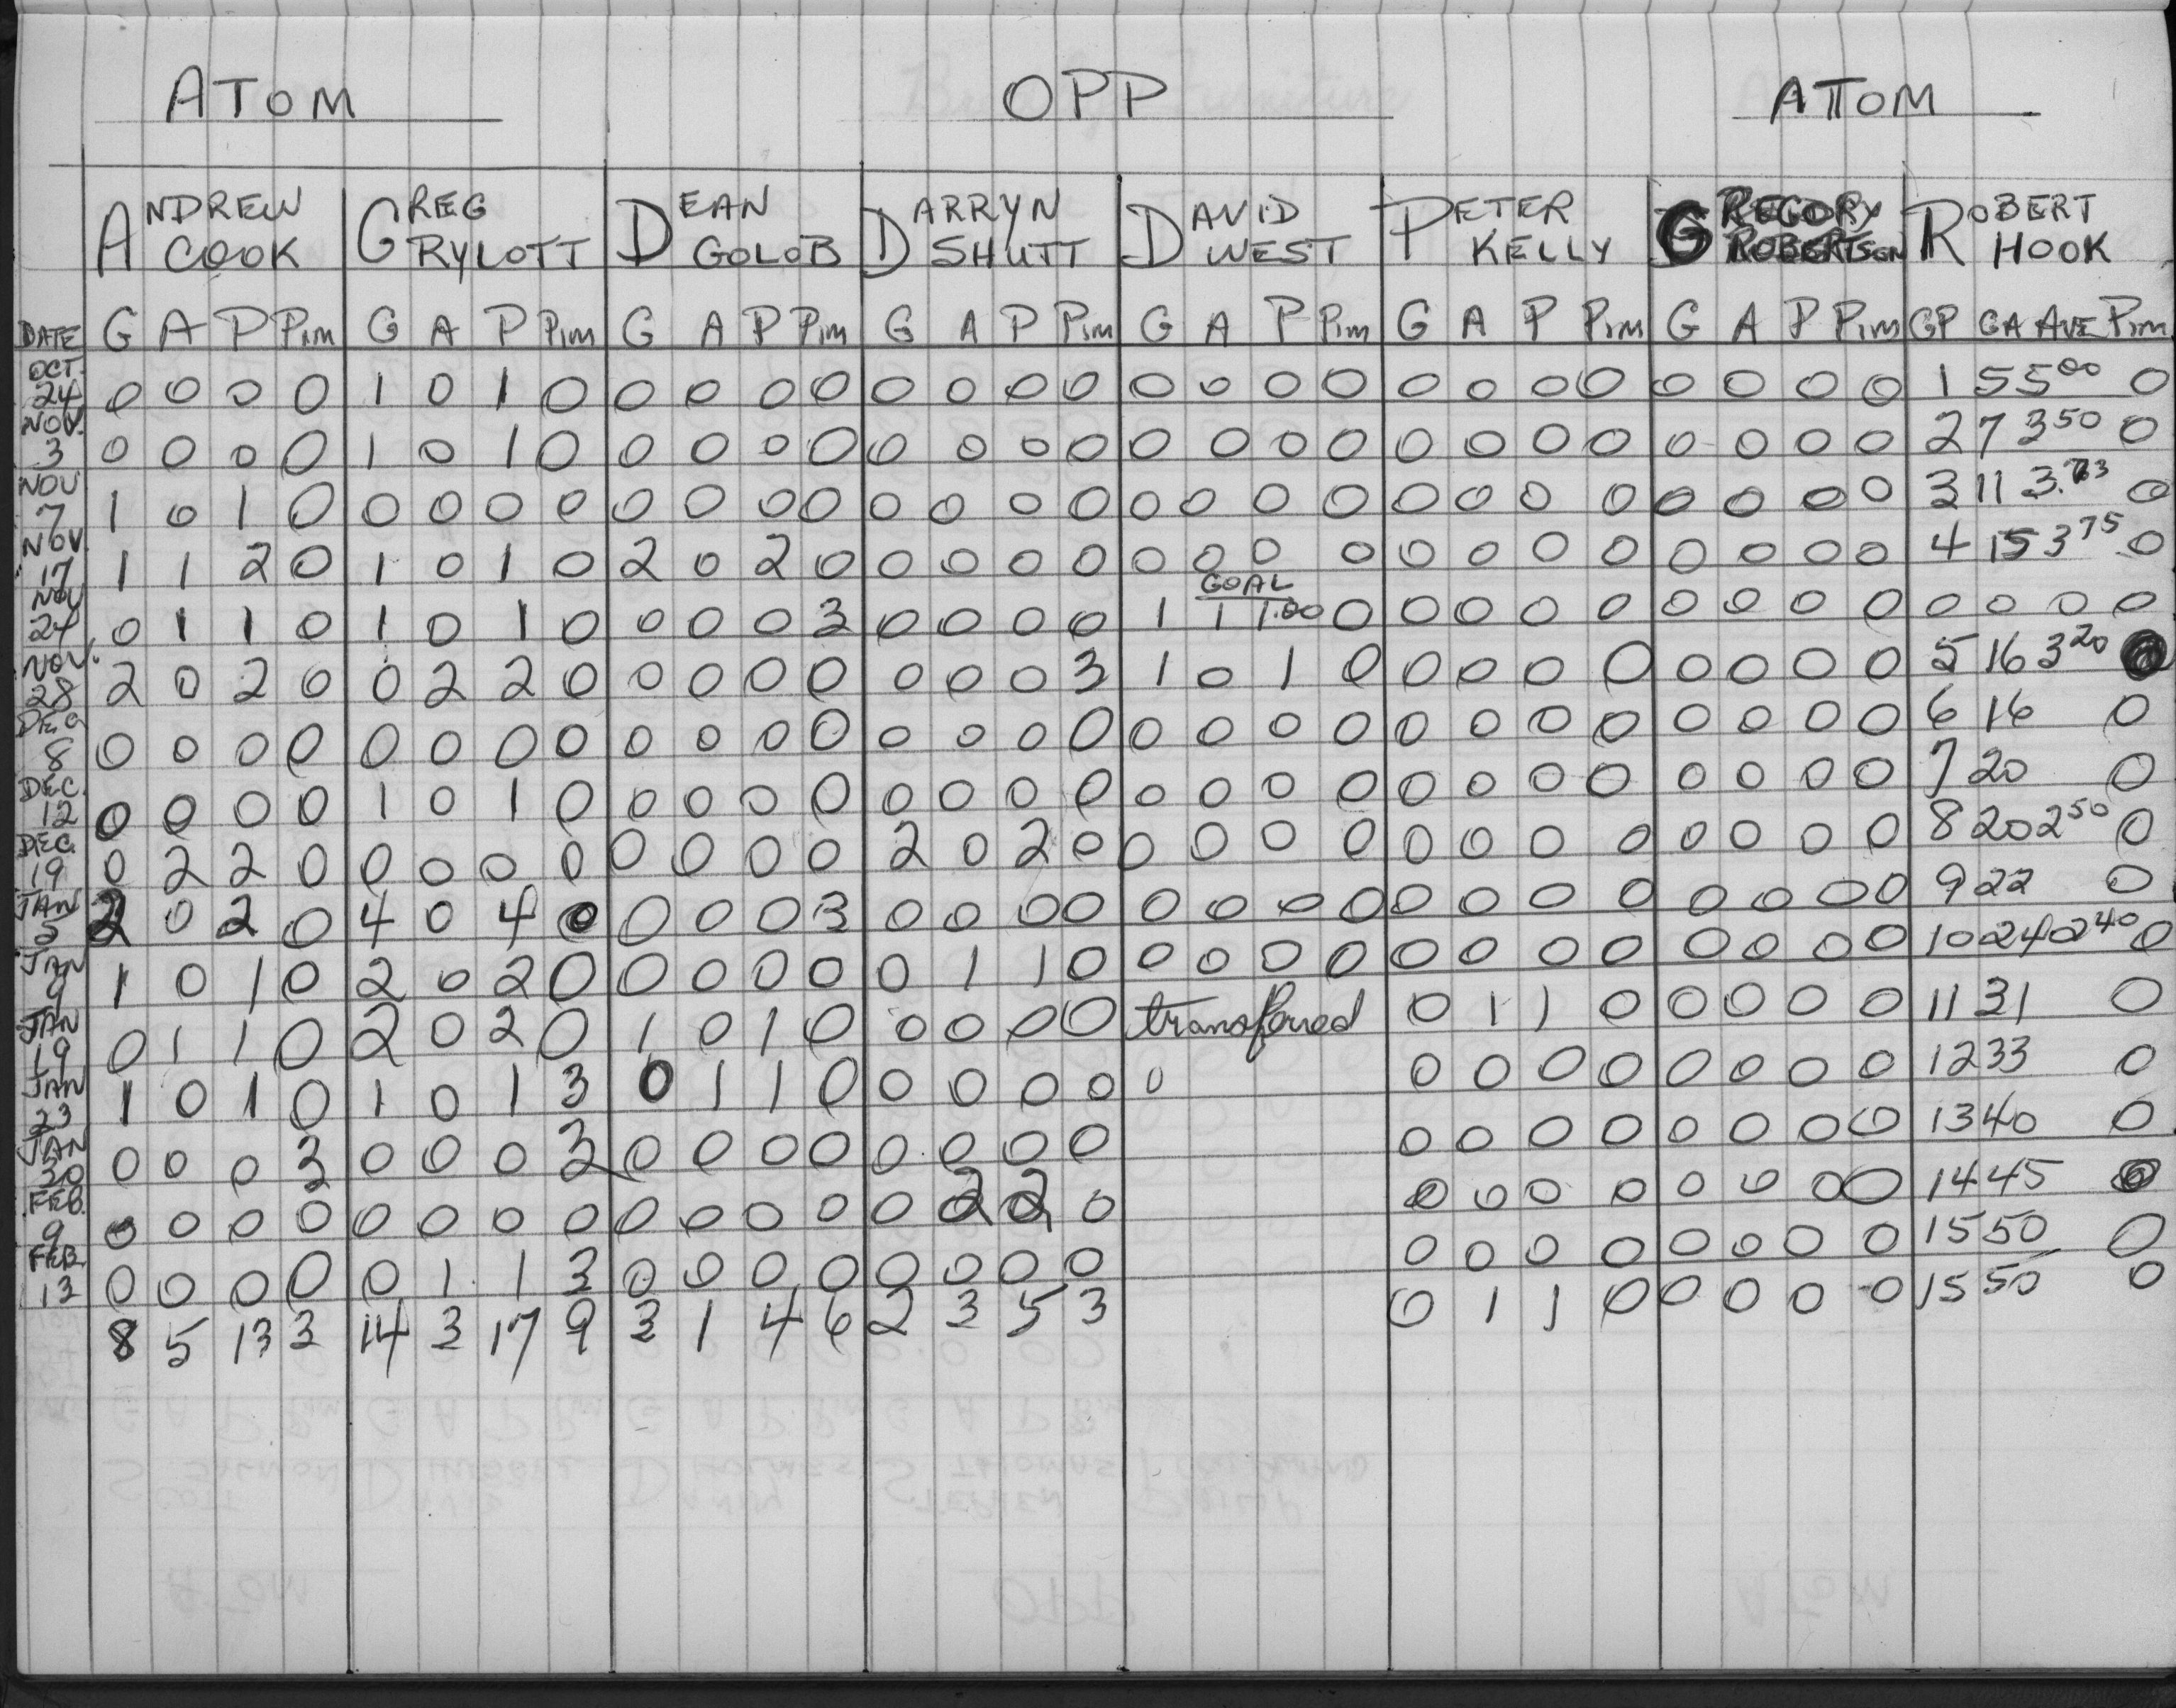 ATOM OPP ATTOM
ANDREW GREG DEAN DARRYN DAVID PETER GREGORY ROBERT
COOK RYLOTT GOLOB SHUTT WEST KELLY ROBERTSON HOOK
DATE G A P Pim G A P Pim G A P Pim G A P Pim G A P Pim G A P Pim G A P Pim GP GA AVE Pim
OCT. 24 0 0 0 0 1 0 1 0 0 0 0 0 0 0 0 0 0 0 0 0 0 0 0 0 0 0 0 0 1 5 5 00 0
NOV. 3 0 0 0 0 1 0 1 0 0 0 0 0 0 0 0 0 0 0 0 0 0 0 0 0 0 0 0 0 2 7 3 50 0
NOV 7 1 0 1 0 0 0 0 0 0 0 0 0 0 0 0 0 0 0 0 0 0 0 0 0 0 0 0 0 3 11 3. 0
NOV. 17 1 1 2 0 1 0 1 0 2 0 2 0 0 0 0 0 0 0 0 0 0 0 0 0 0 0 0 0 4 15 3 75 0
GOAL
NOV 24 0 1 1 0 1 0 1 0 0 0 0 3 0 0 0 0 1 1 1.00 0 0 0 0 0 0 0 0 0 0 0 0 0
NOV. 28 2 0 2 0 0 2 2 0 0 0 0 0 0 0 0 3 1 0 1 0 0 0 0 0 0 0 0 0 5 16 3 20
DEC 8 0 0 0 0 0 0 0 0 0 0 0 0 0 0 0 0 0 0 0 0 0 0 0 0 0 0 0 0 6 16 0
DEC. 12 0 0 0 0 1 0 1 0 0 0 0 0 0 0 0 0 0 0 0 0 0 0 0 0 0 0 0 0 7 20 0
DEC. 19 0 2 2 0 0 0 0 0 0 0 0 0 2 0 2 0 0 0 0 0 0 0 0 0 0 0 0 0 8 20 2 50 0
JAN 2 2 0 2 0 4 0 4 0 0 0 0 3 0 0 0 0 0 0 0 0 0 0 0 0 0 0 0 0 9 22 0
JAN 9 1 0 1 0 2 0 2 0 0 0 0 0 0 1 1 0 0 0 0 0 0 0 0 0 0 0 0 0 10 24 0 2 40 0
JAN 19 0 1 1 0 2 0 2 0 1 0 1 0 0 0 0 0 transferred 0 1 1 0 0 0 0 0 11 31 0
JAN 23 1 0 1 0 1 0 1 3 0 1 1 0 0 0 0 0 0 0 0 0 0 0 0 0 0 12 33 0
JAN 30 0 0 0 3 0 0 0 3 0 0 0 0 0 0 0 0 0 0 0 0 0 0 0 0 13 40 0
FEB. 9 0 0 0 0 0 0 0 0 0 0 0 0 0 2 2 0 0 0 0 0 0 0 0 0 14 45 0
FEB. 13 0 0 0 0 0 1 1 3 0 0 0 0 0 0 0 0 0 0 0 0 0 0 0 0 15 50 0
8 5 13 3 14 3 17 9 3 1 4 6 2 3 5 3 0 1 1 0 0 0 0 0 15 50 0